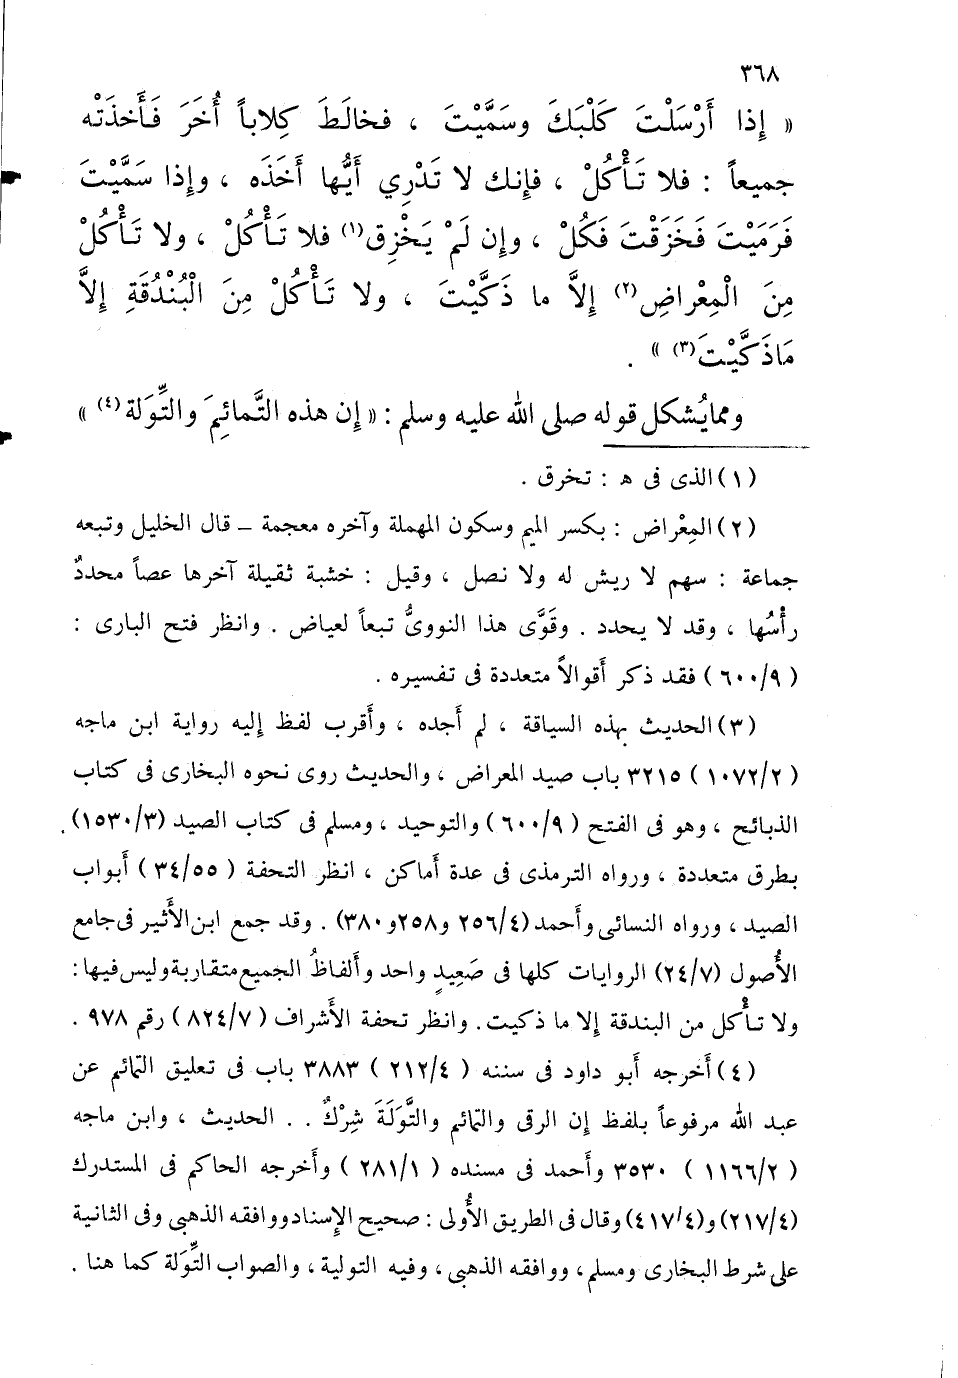 ٣٦٨
« إِذا أَرْسَلْتَ كَلْبَكَ وسَمَّيْتَ ، فخالَطَ كِلاباً أُخَرَ فَأَخذَتْه
جميعاً : فلا تَأْكُلْ ، فإنك لا تَدْرِي أَيُّها أَخَذَه ، وإِذا سَمَّيْتَ
فَرَمَيْتَ فَخَزَقْتَ فَكُلْ ، وإِن لَمْ يَخْزِق(١) فلا تَأْكُلْ ، ولا تَأْكُلْ
مِنَ الْمِعْراضِ(٢) إِلاَّ ما ذَكَّيْتَ ، ولا تَأْكُلْ مِنَ الْبُنْدُقَةِ إِلاَّ
مَاذَكَّيْتَ(٣) » .
ومما يُشكل قوله صلى الله عليه وسلم : « إِن هذه التَّمائِمَ والتِّوَلة(٤) »
(١) الذى فى ه : تخرق .
(٢) المِعْراض : بكسر الميم وسكون المهملة وآخره معجمة – قال الخليل وتبعه
جماعة : سهم لا ريش له ولا نصل ، وقيل : خشبة ثقيلة آخرها عصاً محددٌ
رأْسُها ، وقد لا يحدد . وقَوَّى هذا النووىُّ تبعاً لعياض . وانظر فتح البارى :
( ٦٠٠/٩ ) فقد ذكر أَقوالاً متعددة فى تفسيره .
(٣) الحديث بهذه السياقة ، لم أَجده ، وأَقرب لفظ إليه رواية ابن ماجه
( ١٠٧٢/٢ ) ٣٢١٥ باب صيد المعراض ، والحديث روى نحوه البخارى فى كتاب
الذبائح ، وهو فى الفتح ( ٦٠٠/٩ ) والتوحيد ، ومسلم فى كتاب الصيد (١٥٣٠/٣) .
بطرق متعددة ، ورواه الترمذى فى عدة أماكن ، انظر التحفة ( ٣٤/٥٥ ) أبواب
الصيد ، ورواه النسائى وأحمد (٢٥٦/٤ و٢٥٨ و٣٨٠) . وقد جمع ابن الأَثير فى جامع
الأُصول (٢٤/٧) الروايات كلها فى صَعِيدٍ واحد وألفاظُ الجميع متقاربة وليس فيها :
ولا تأْكل من البندقة إلا ما ذكيت . وانظر تحفة الأشراف ( ٨٢٤/٧ ) رقم ٩٧٨ .
(٤) أَخرجه أبو داود فى سننه ( ٢١٢/٤ ) ٣٨٨٣ باب فى تعليق التمائم عن
عبد الله مرفوعاً بلفظ إن الرقى والتمائم والتَّوَلَةَ شِرْكٌ . . الحديث ، وابن ماجه
( ١١٦٦/٢ ) ٣٥٣٠ وأحمد فى مسنده ( ٢٨١/١ ) وأخرجه الحاكم فى المستدرك
(٢١٧/٤) و(٤١٧/٤) وقال فى الطريق الأُولى : صحيح الإسناد ووافقه الذهبى وفى الثانية
على شرط البخارى ومسلم ، ووافقه الذهبى ، وفيه التولية ، والصواب التِّوَلة كما هنا .